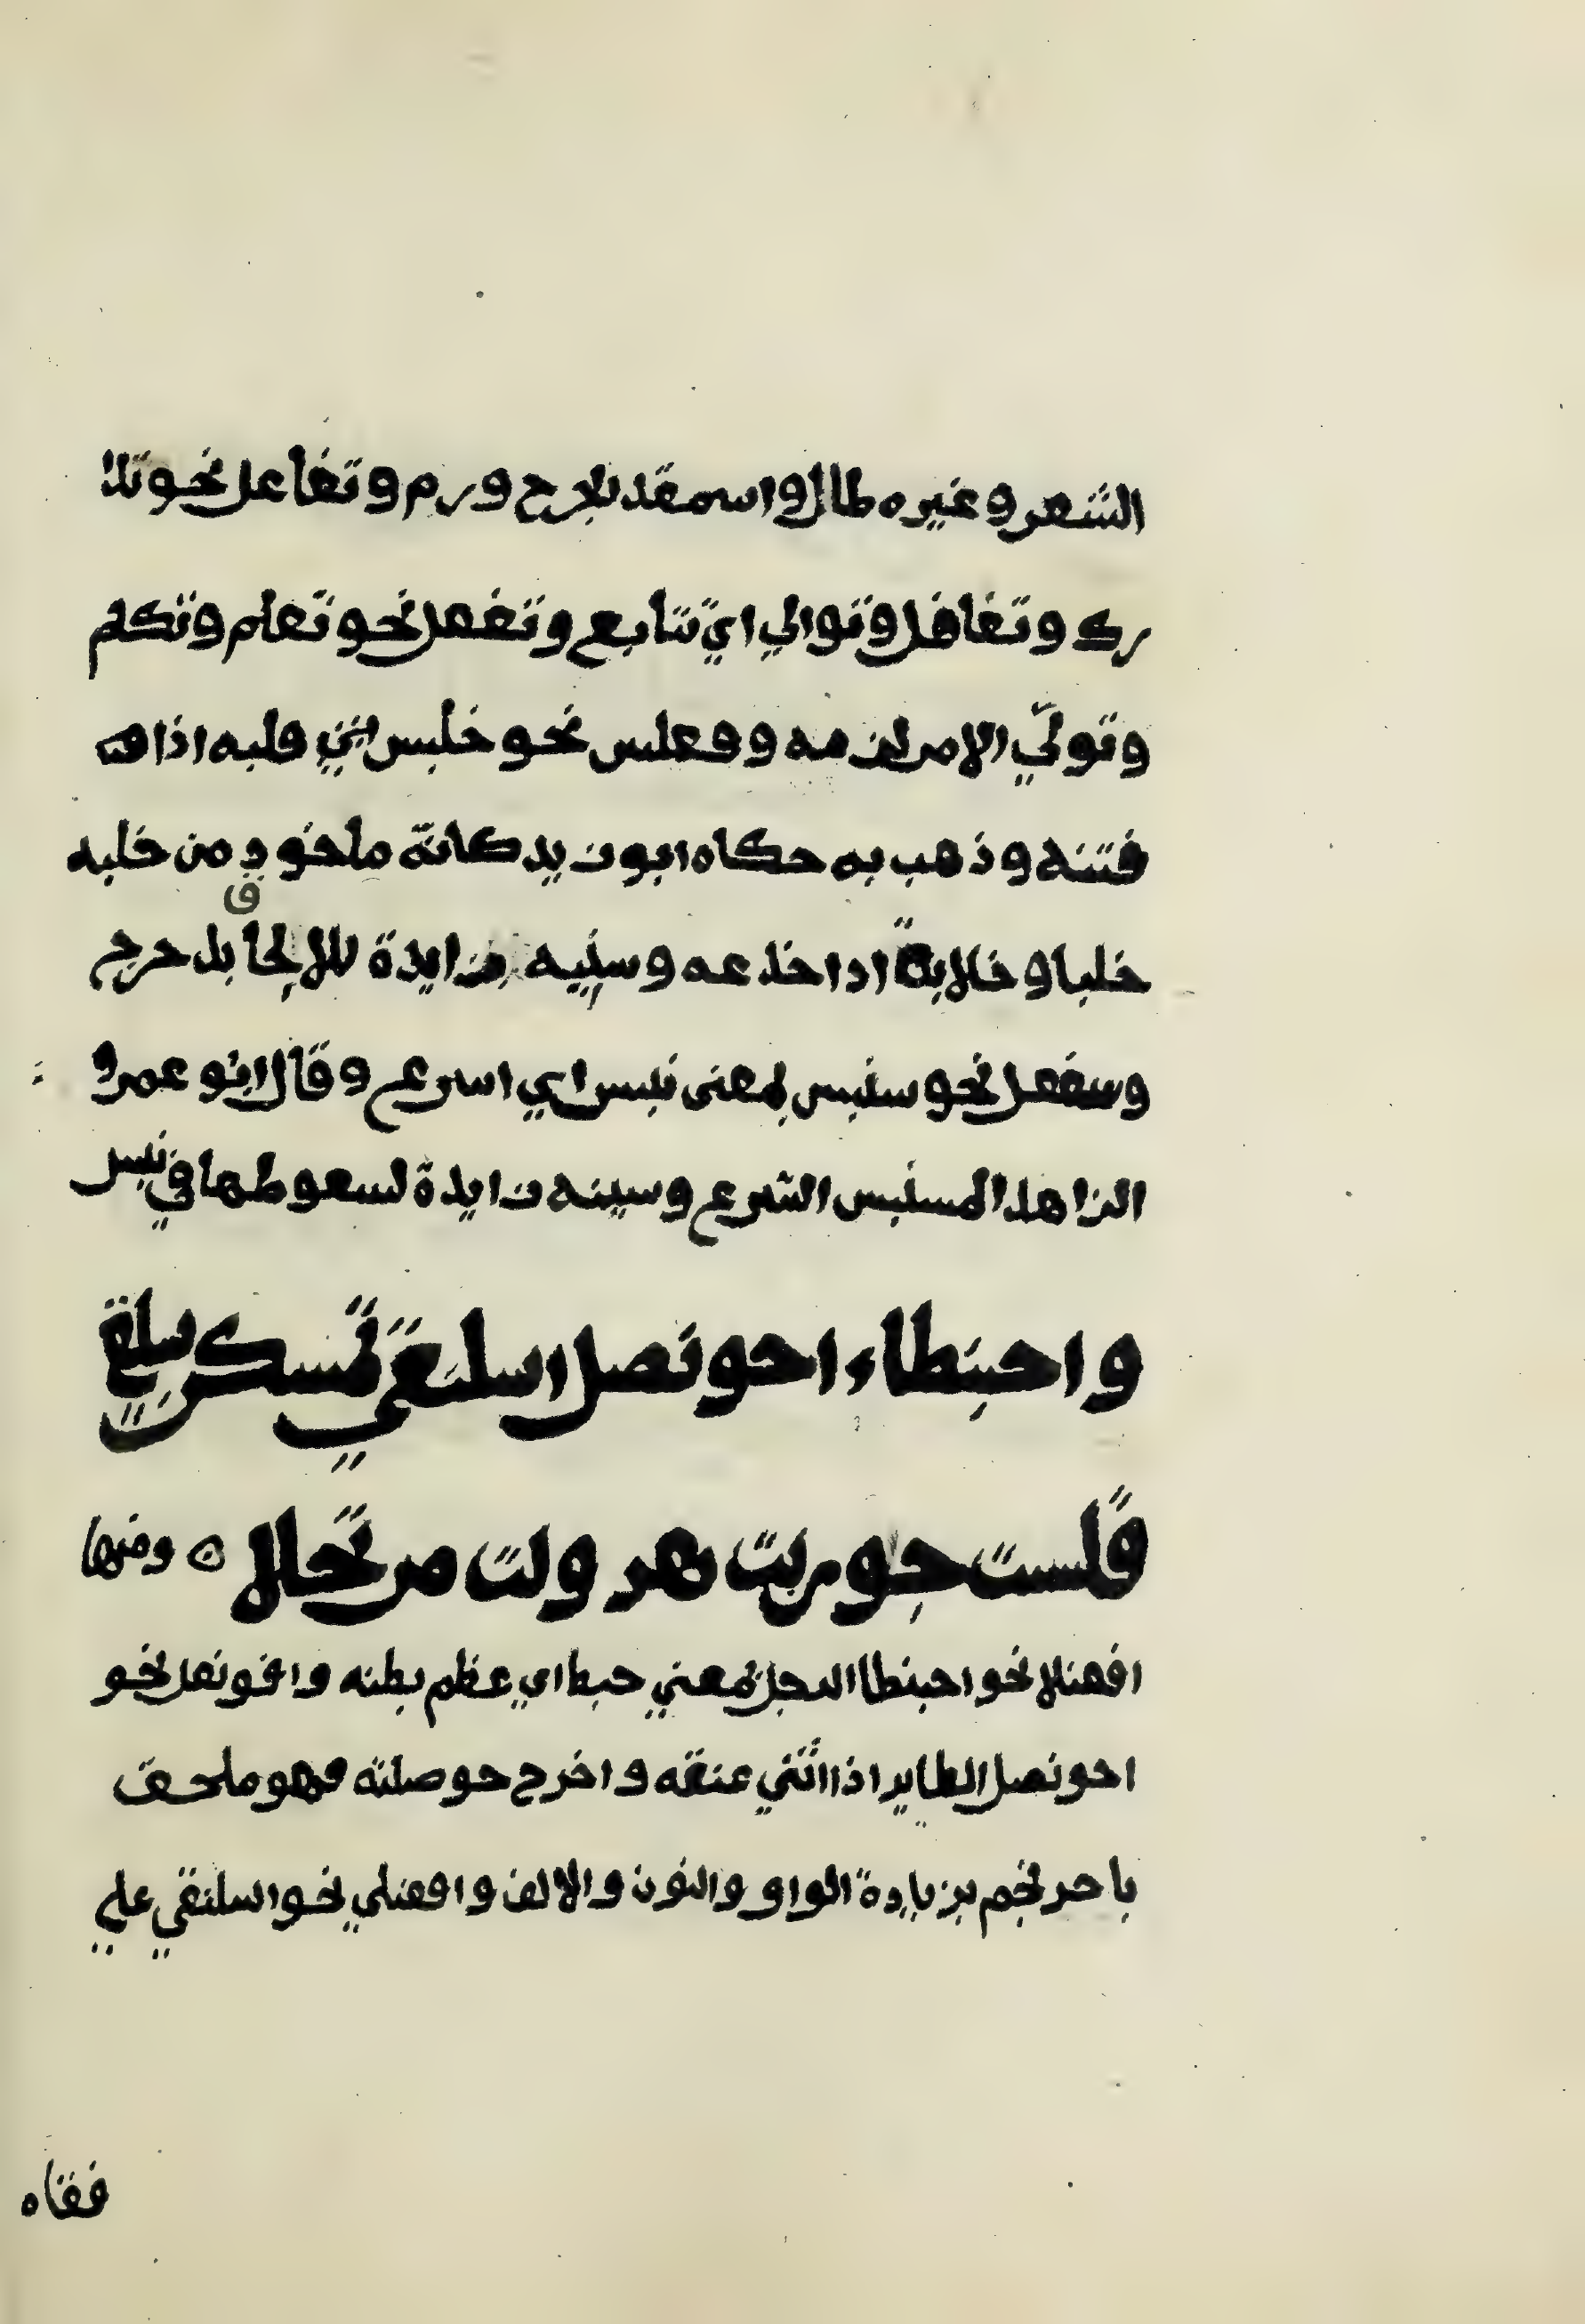 الشعر وغيره طال واسمقد للجرح ورم وتفاعل نحو تدا
رك وتغافل وتوالي اي تتابع وتفعل نحو تعلم وتكلم
وتولّي الامر لزمه وفعلس نحو خلبس قلبه اذا
فتنه وذهب به حكاه ابو زيد كانّه ماخوذ من خلبه
خلبا وخلابةً اذا خدعه وسينه زايدة للالحاق بدحرج
وسفعل نحو سنبس بمعنى نبس اي اسرع وقال ابو عمرو
الزاهد السنبس السّريع وسينه زايدة لسقوطها في نبس
واحبنطاء احونصل اسلنقي تمسكن سلقي
قلنست جوربت هرولت مرتحلا ه ومنها
افعنلا نحو احبنطا الرجل بمعني حبط اي عظم بطنه وافونعل نحو
احونصل الطاير اذا اثنني عنقه واخرج حوصلته فهو ملحق
باحرنجم بزيادة الواو والنون والالف وافعنلي نحو اسلنقي علي
قفاه